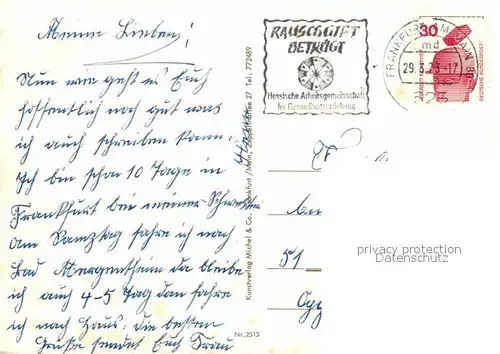 Meine Lieben!
Nun wie geht es Euch
hoffentlich noch gut was
ich auch schreiben kann.
Ich bin schon 10 Tage in
Frankfurt bei meiner Schwester
am Samstag fahre ich nach
Bad Mergentheim da bleibe
ich auch 4-5 Tag dan fahre
ich nach Haus. die besten
Grüße sendet Euch Frau
Kunstverlag Michel & Co., Frankfurt/Main, 27 Tel. 772489
Nr. 2515
RAUSCHGIFT
BETRÜGT
Hessische Arbeitsgemeinschaft
für Gesundheitserziehung
FRANKFURT AM MAIN
md
29.3.73-17
30
DEUTSCHE BUNDESPOST
51
privacy protection
Datenschutz